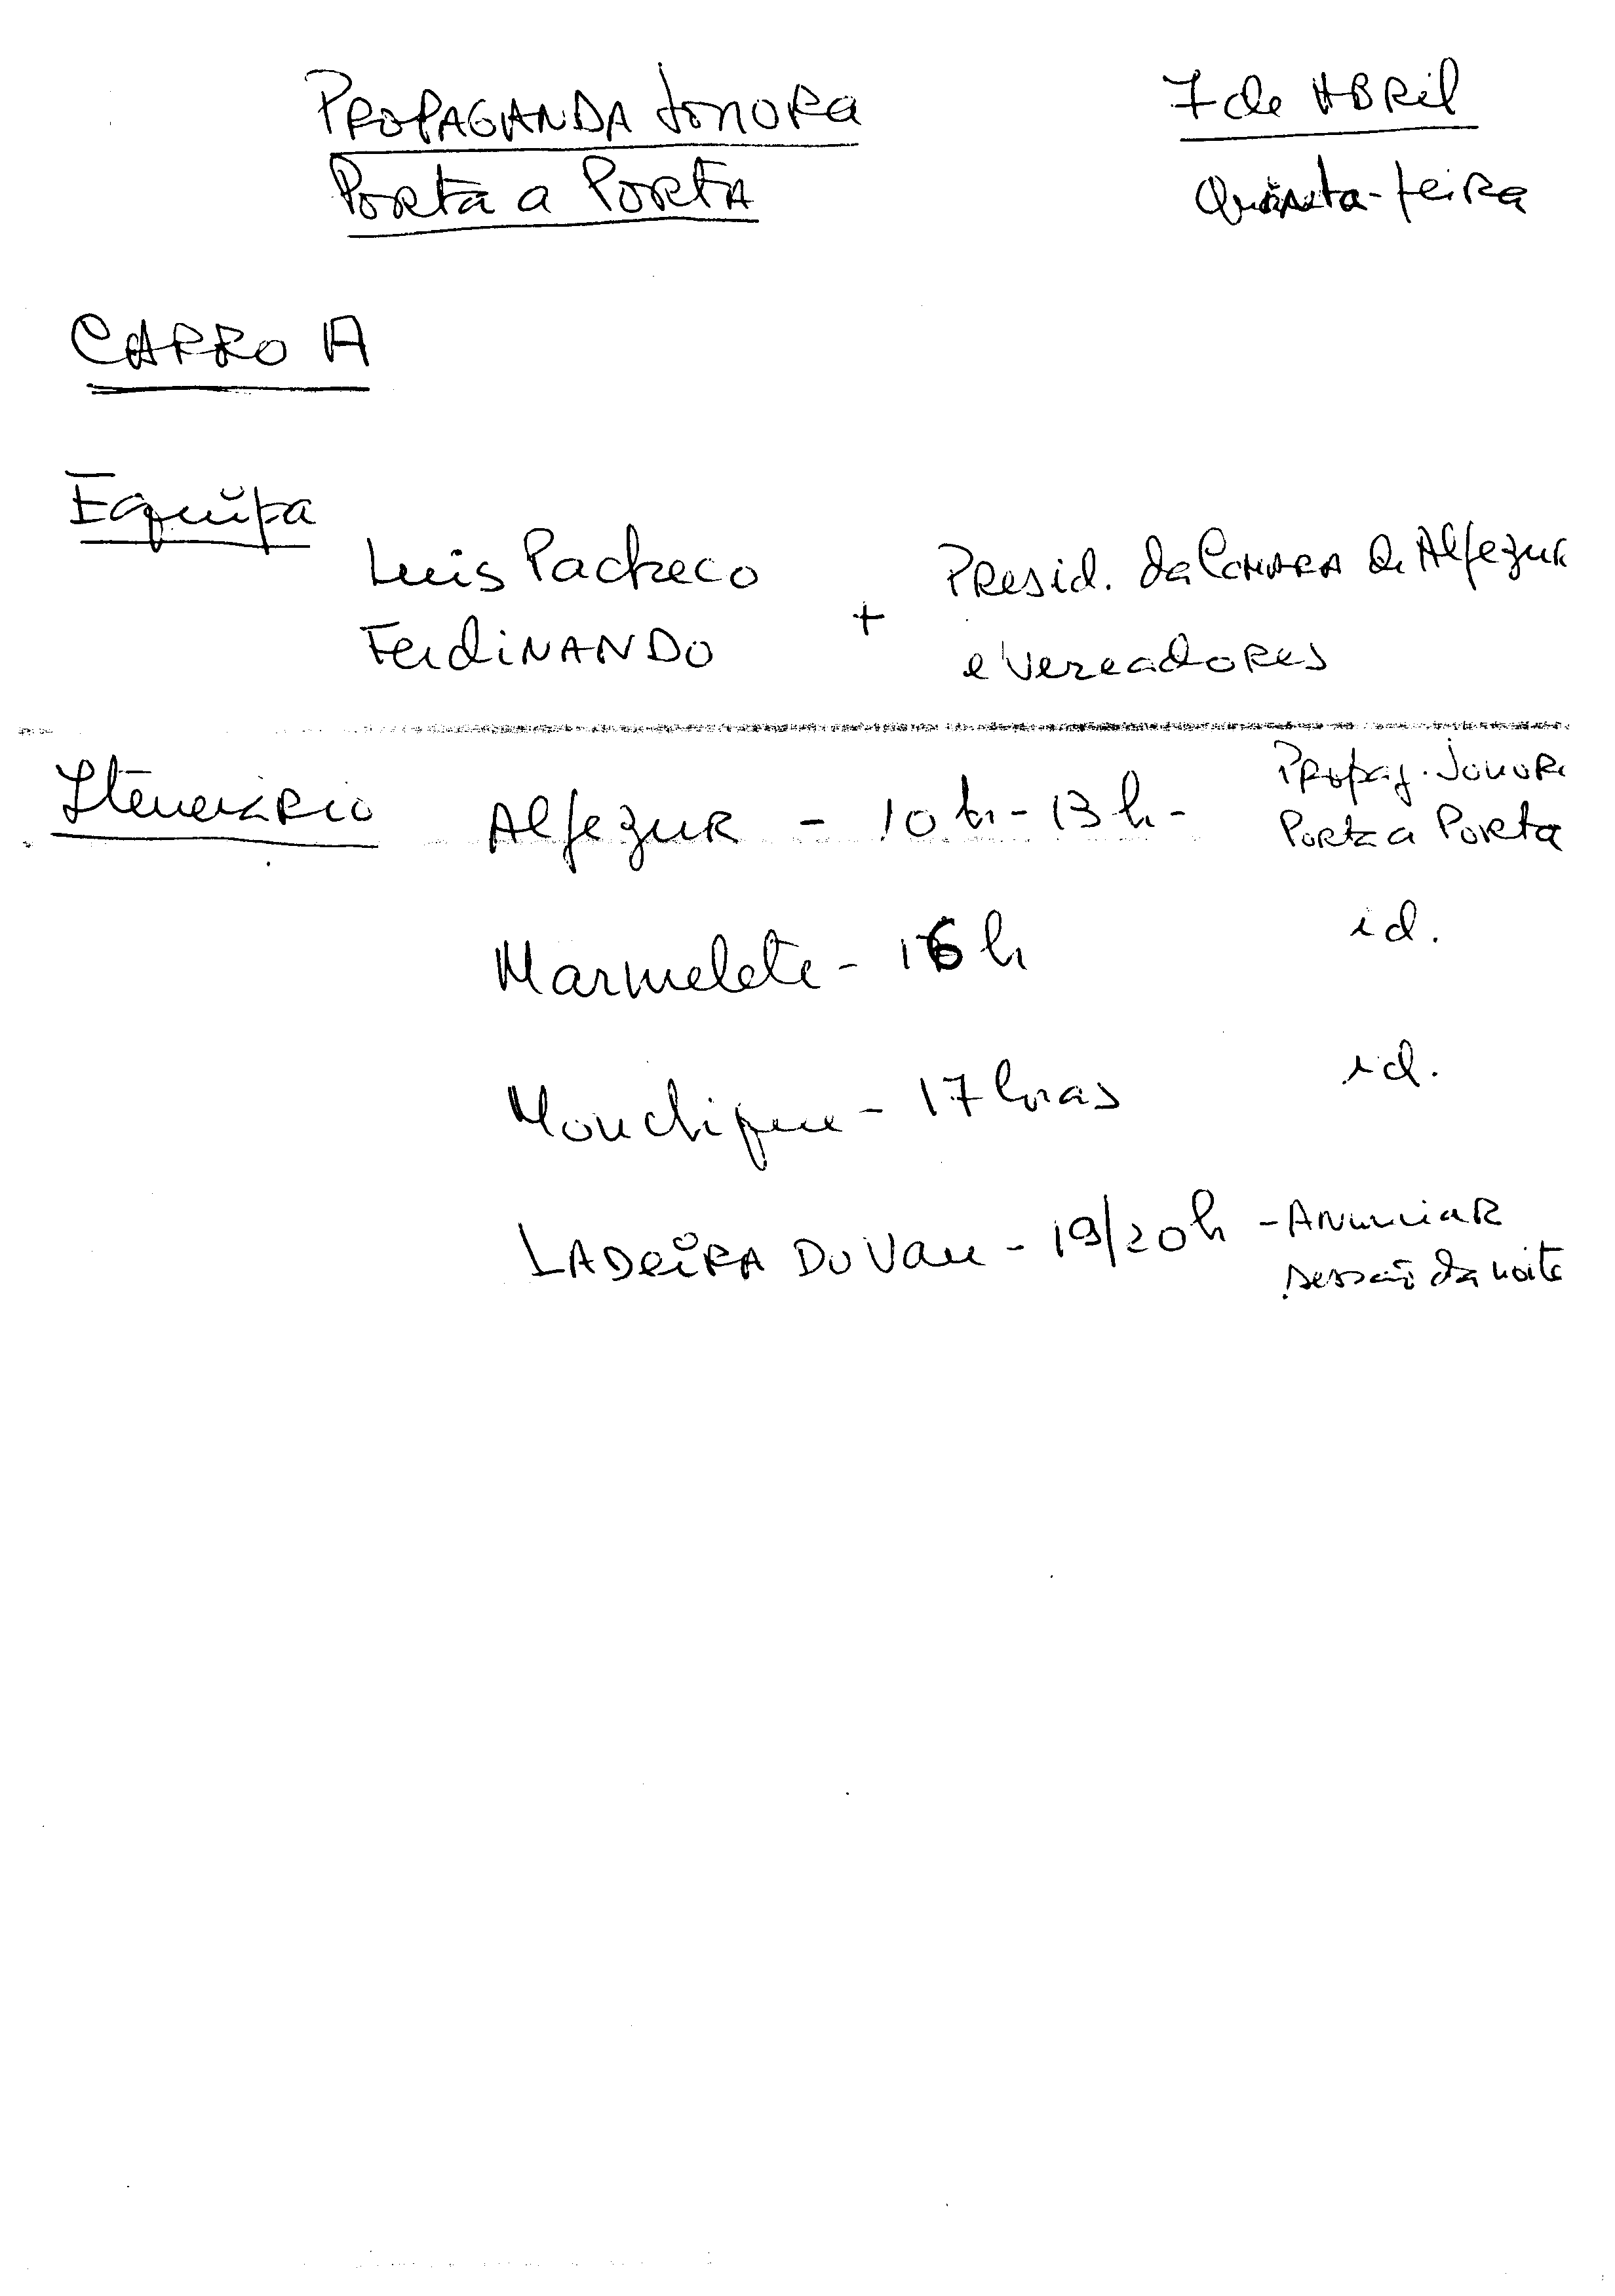 PROPAGANDA SONORA
PORTA A PORTA
7 de ABRil
Quinta-feira
CARRO A
Equipa
Luis Pacheco
FerdiNANDO
+
PResid. da CâMARA de Aljezur
e VereadoRes
Itenerário
Aljezur - 10h - 13h -
PRopag. Sonora
Porta a Porta
Marmelete - 16h
id.
Monchique - 17 horas
id.
LADeiRA Do Vau - 19/20h - ANunciar
sessão da noite